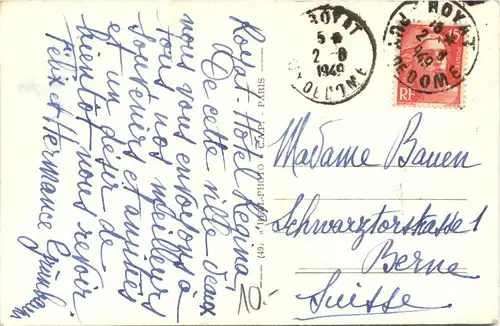 Royat - Hotel Regina,
De cette ville d'eaux
nous vous envoyons à
tous nos meilleurs
souvenirs et amitiés
et un désir de
bientôt vous revoir
Félix et Hermance
(49) PARIS
10.-
ROYAT
5
2-8
1949
PUY DE DOME
ROYAT
2-8
PUY DE DOME
15F
RF
Madame Bauen
Schwarztorstrasse 1
Berne
Suisse